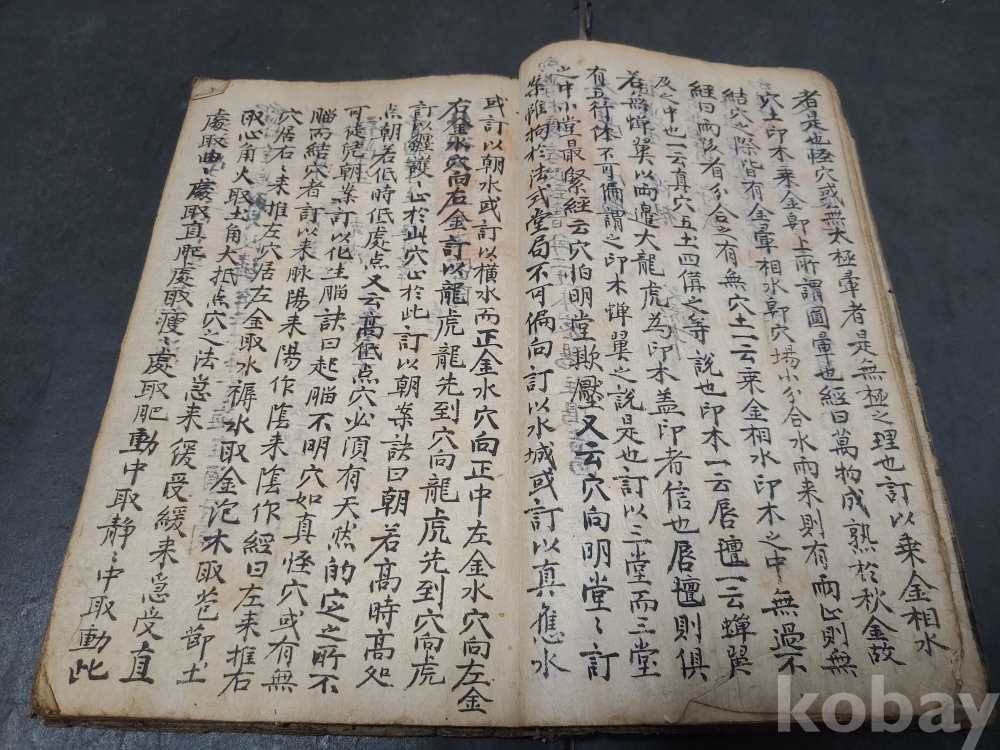 者是也怪穴或無太極暈者是無極之理也訂以乘金相水
穴土印木乘金卽上所謂圓暈也經曰萬物成熟於秋金故
結穴之際皆有金暈相水卽穴場小分合水雨来則有雨止則無
經曰雨該者分合之有無穴土一云乘金相水印木之中無過不
及之中也一云真穴五土四備之等說也印木一云唇壇一云蟬翼
若無蟬翼以兩邊大龍虎為印木盖印者信也唇壇則俱
有五行体不可偏謂之印木蟬翼之說是也訂以三堂而三堂
之中小堂最緊經云穴怕明堂欺壓又云穴向明堂〻訂
案難拘於法式堂局不可偏向訂以水城或訂以真應水
或訂以朝水或訂以橫水而正金水穴向正中左金水穴向左金
右金水穴向右金訂以龍虎龍先到穴向龍虎先到穴向虎
訂以纒護〻止於此穴止於此訂以朝案訣曰朝若高時高处
点朝若低時低處点又云高低点穴必須有天然的定之所不
可徒從朝案訂以化生腦訣曰起腦不明穴如真怪穴或有無
腦而結穴者訂以来脉陽来陽作陰来陰作經曰左来推右
穴居右〻来推左穴居左金取水褥水取金泡木取芭節土
取心角火取土角大抵点穴之法急来緩受緩来急受直
處取曲〻處取直肥處取瘦〻處取肥動中取靜〻中取動此
kobay